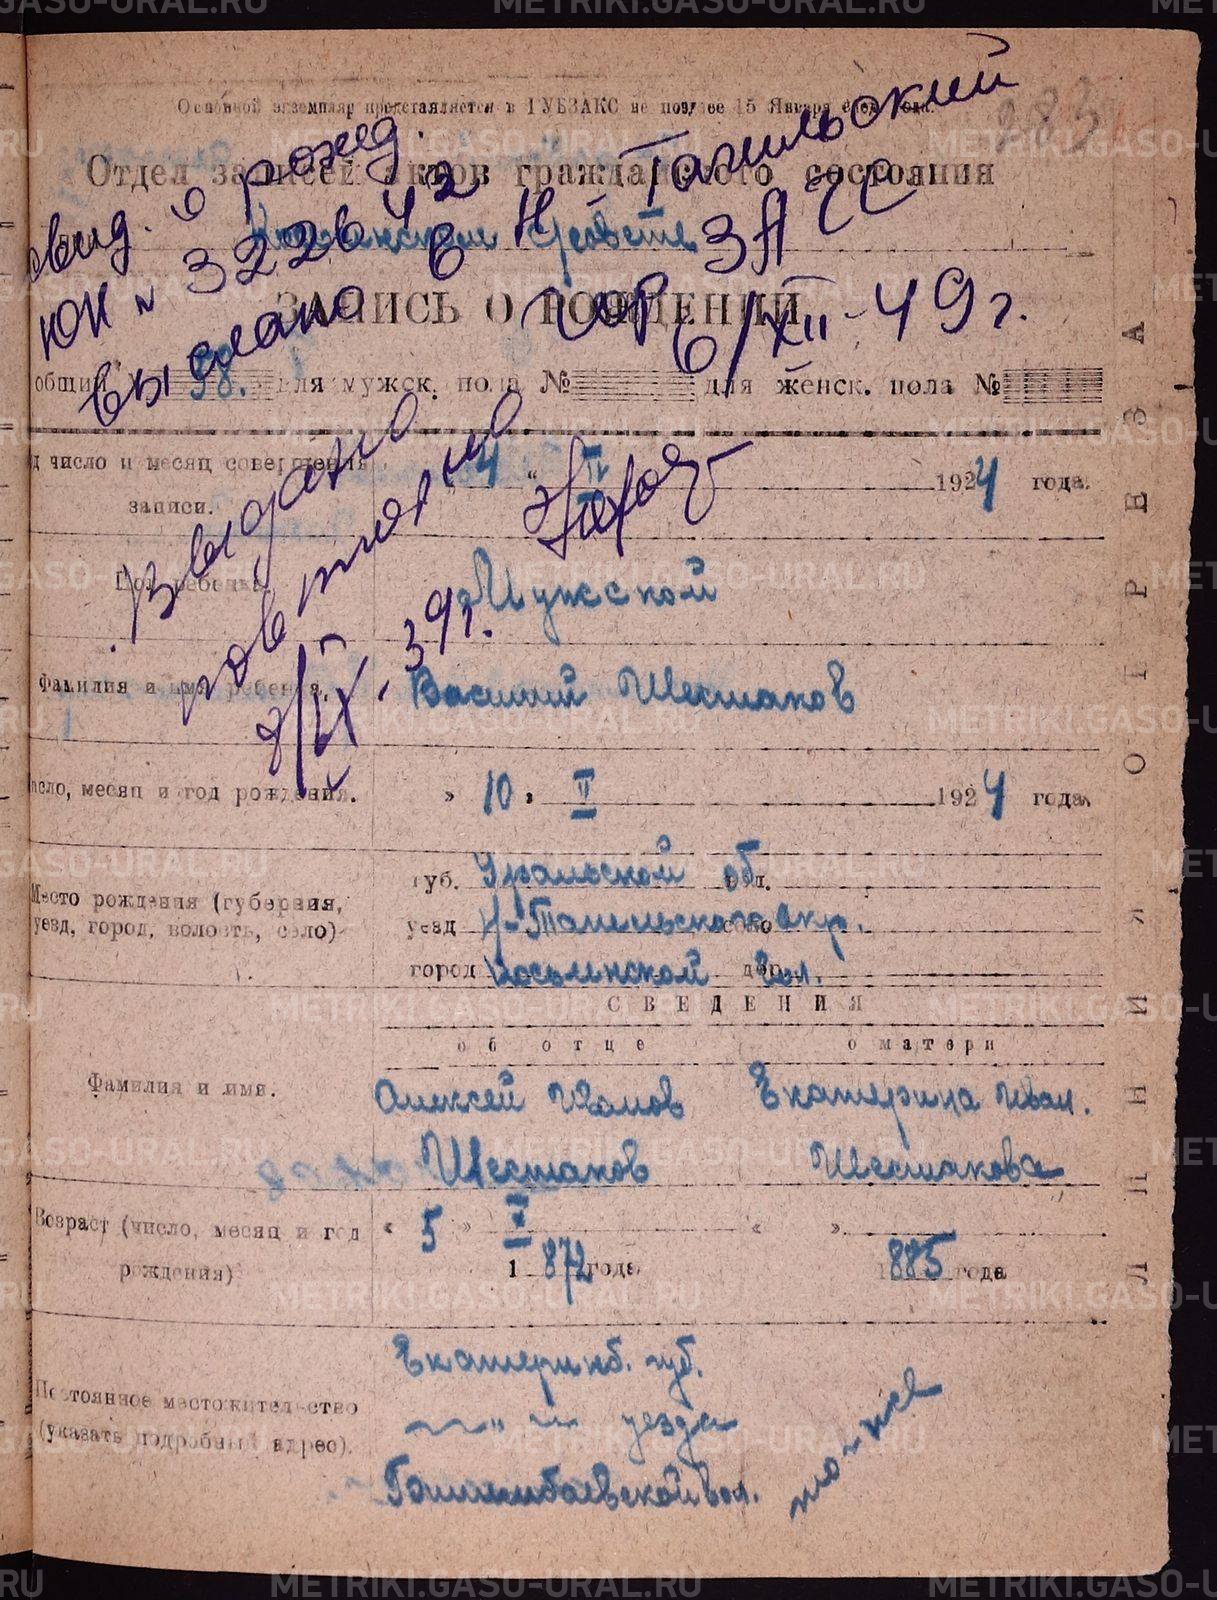 Основной экземпляр представляется в ГУБЗАКС не позднее 15 Января след. года.
183
Отдел записей актов гражданского состояния
ЗАПИСЬ О РОЖДЕНИИ
свид. о рожд.
ЮК № 322642
выслано в Н-Тагильский
гор ЗАГС
6/XII-49г.
общий 98. для мужск. пола № для женск. пола №
число и месяц совершения записи. 4 " II 1924 года.
Выдано
повторно
7/IX-39г.
Пол ребенка. Мужской
Фамилия и имя ребенка. Василий Шестаков
число, месяц и год рождения. » 10 » II 1924 года.
Место рождения (губерния, уезд, город, волость, село)
губ. Уральской об вол.
уезд Н-Тагильского окр. село
город вол. дер.
СВЕДЕНИЯ
об отце о матери
Фамилия и имя.
Алексей Шестаков
Екатерина Иван. Шестакова
Возраст (число, месяц и год рождения)
« 5 » 1872 года.
« » 1885 года
Постоянное местожительство (указать подробный адрес).
Екатеринб. губ.
—"— уезда
вол.
то-же
ЛИНИЯ ОТРЕЗА
METRIKI.GASO-URAL.RU